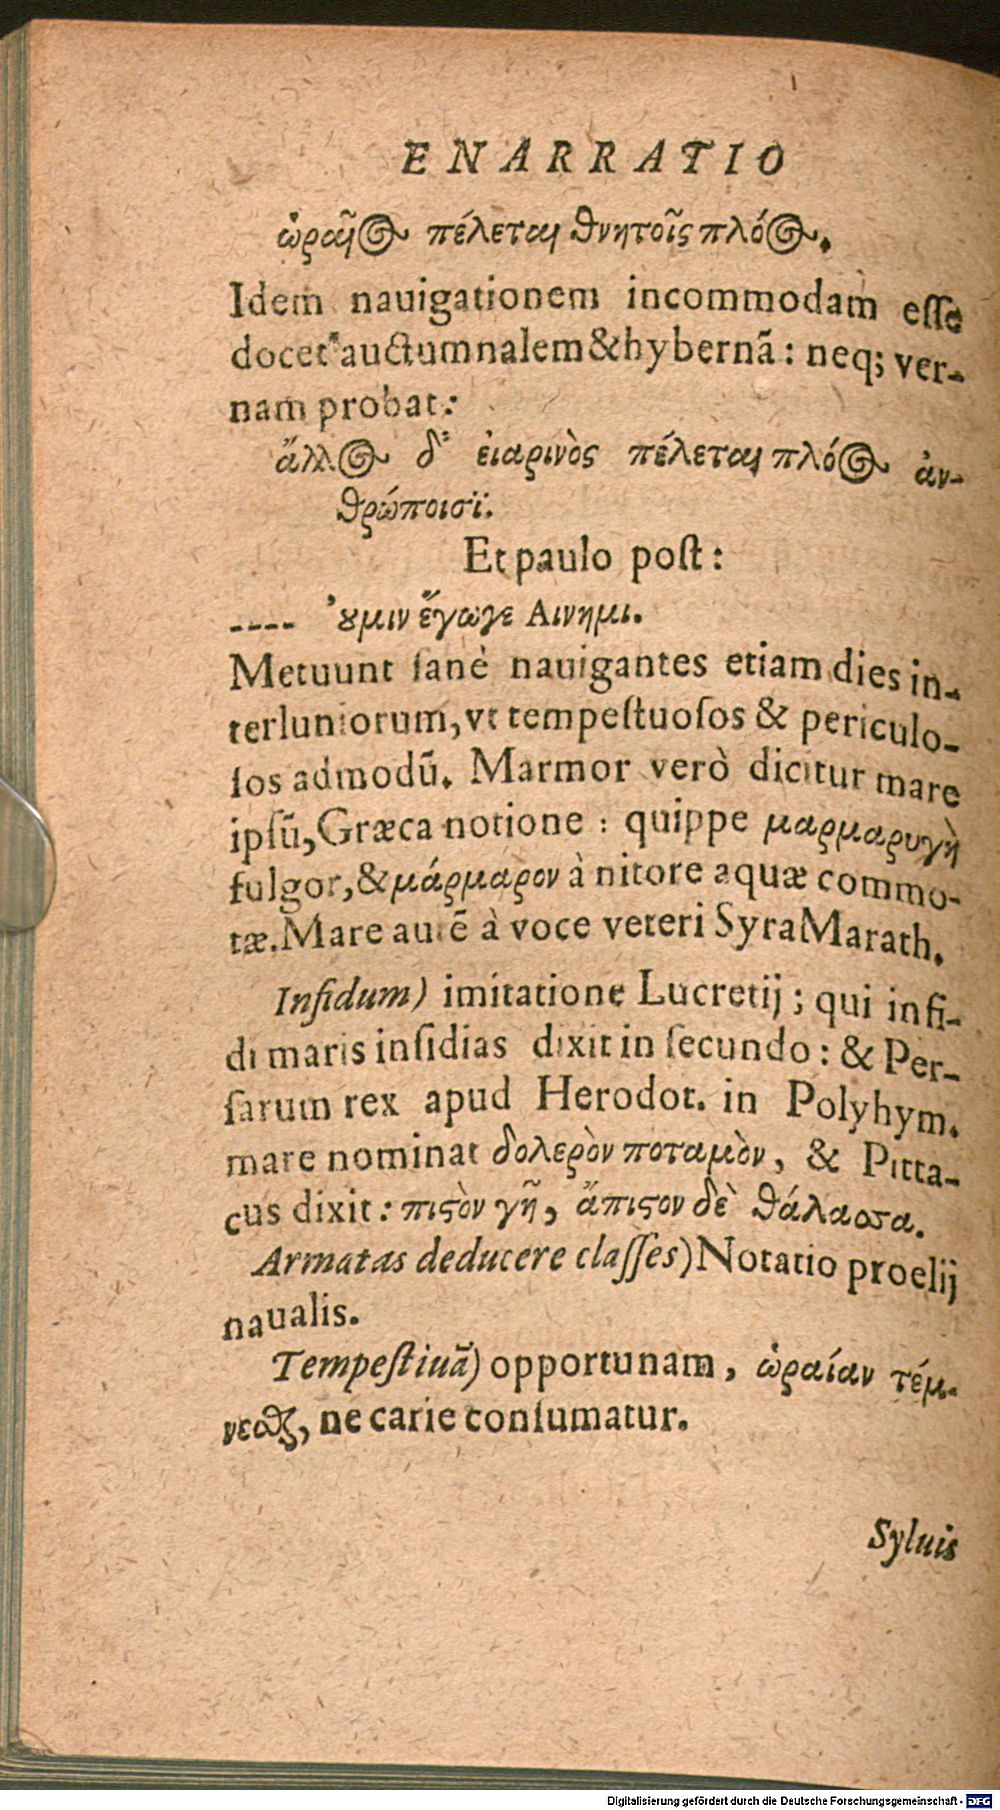 ENARRATIO
ὡραῖος πέλεται θνητοῖς πλόος.
Idem nauigationem incommodam eſſe
docet auctumnalem & hybernã: neq; ver-
nam probat:
ἄλλος δ' εἰαρινὸς πέλεται πλόος ἀν-
θρώποισϊ.
Et paulo poſt:
---- ὄυμιν ἔγωγε Αινημι.
Metuunt ſanè nauigantes etiam dies in-
terluniorum, vt tempeſtuoſos & periculo-
ſos admodũ. Marmor verò dicitur mare
ipſũ, Græca notione: quippe μαρμαρυγὴ
fulgor, & μάρμαρον à nitore aquæ commo-
tæ. Mare autẽ à voce veteri Syra Marath.
Infidum) imitatione Lucretij; qui infi-
di maris inſidias dixit in ſecundo: & Per-
ſarum rex apud Herodot. in Polyhym.
mare nominat δολερὸν ποταμὸν, & Pitta-
cus dixit: πιϛὸν γῆ, ἄπιϛον δὲ θάλασσα.
Armatas deducere claſſes) Notatio proelij
naualis.
Tempeſtiuã) opportunam, ὡραίαν τέμ-
νεσθαι, ne carie conſumatur.
Syluis
Digitalisierung gefördert durch die Deutsche Forschungsgemeinschaft - DFG